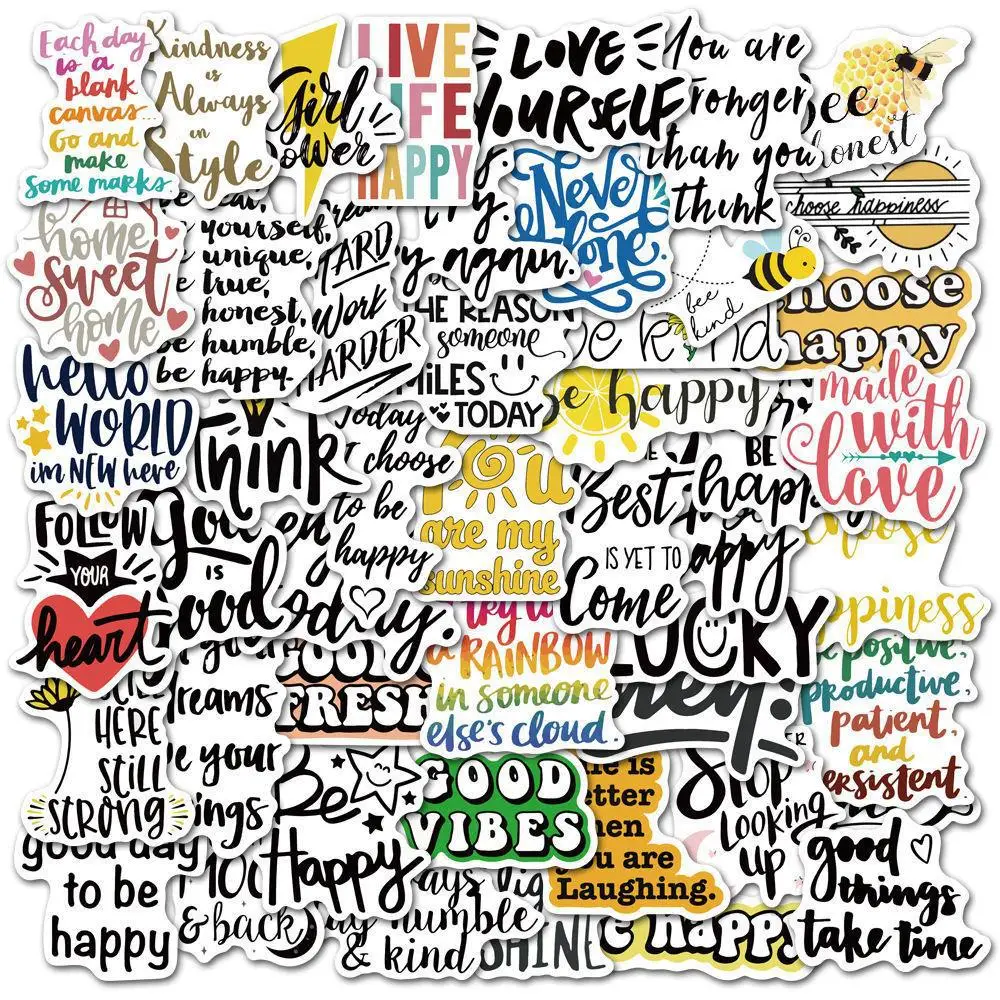 Each day
is a
blank
canvas...
Go and
make
some marks.
Kindness
is
Always
in
Style
Girl
Power
LIVE
LIFE
HAPPY
LOVE
YOURSELF
You are
than you
think
Bee
honest
choose happiness
home
sweet
home
yourself,
unique,
true,
honest,
be humble,
be happy.
HARD
WORK
HARDER
try.
again.
Never
alone
bee
kind
choose
happy
THE REASON
someone
SMILES
TODAY
be kind
be happy
made
with
love
hello
WORLD
im NEW here
Think
Today
I choose
to be
happy
You
are my
sunshine
THE
Best
IS YET TO
Come
BE
happy
happy
choose
happiness
FOLLOW
YOUR
heart
IS
Good
today.
STILL
HERE
STILL
STRONG
dreams
be your
wings
FRESH
try to
a RAINBOW
in someone
else's cloud.
LUCKY
be positive,
productive,
patient,
and
persistent.
Be
Happy
GOOD
VIBES
life is
better
when
you are
Laughing.
STOP
LOOKING
UP
good
things
take time
good day
to be
happy
& back
humble
& kind
SHINE
be happy